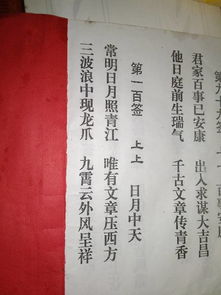 君家百事已安康 出入求谋大吉昌
他日庭前生瑞气 千古文章传青香
第一百签 上上 日月中天
常明日月照青江 唯有文章压西方
三波浪中现龙爪 九霄云外风呈祥